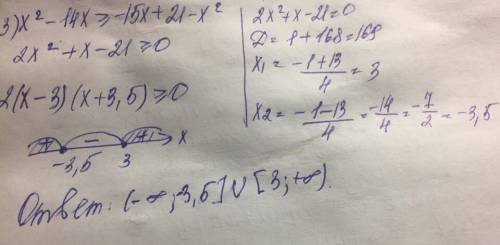 3) x² - 14x ≥ -15x + 21 - x²
2x² + x - 21 ≥ 0
2(x-3)(x+3,5) ≥ 0
+ - + x
-3,5 3
2x² + x - 21 = 0
D = 1 + 168 = 169
x1 = (-1+13)/4 = 3
x2 = (-1-13)/4 = -14/4 = -7/2 = -3,5
Ответ: (-∞; 3,5] ∪ [3; +∞).